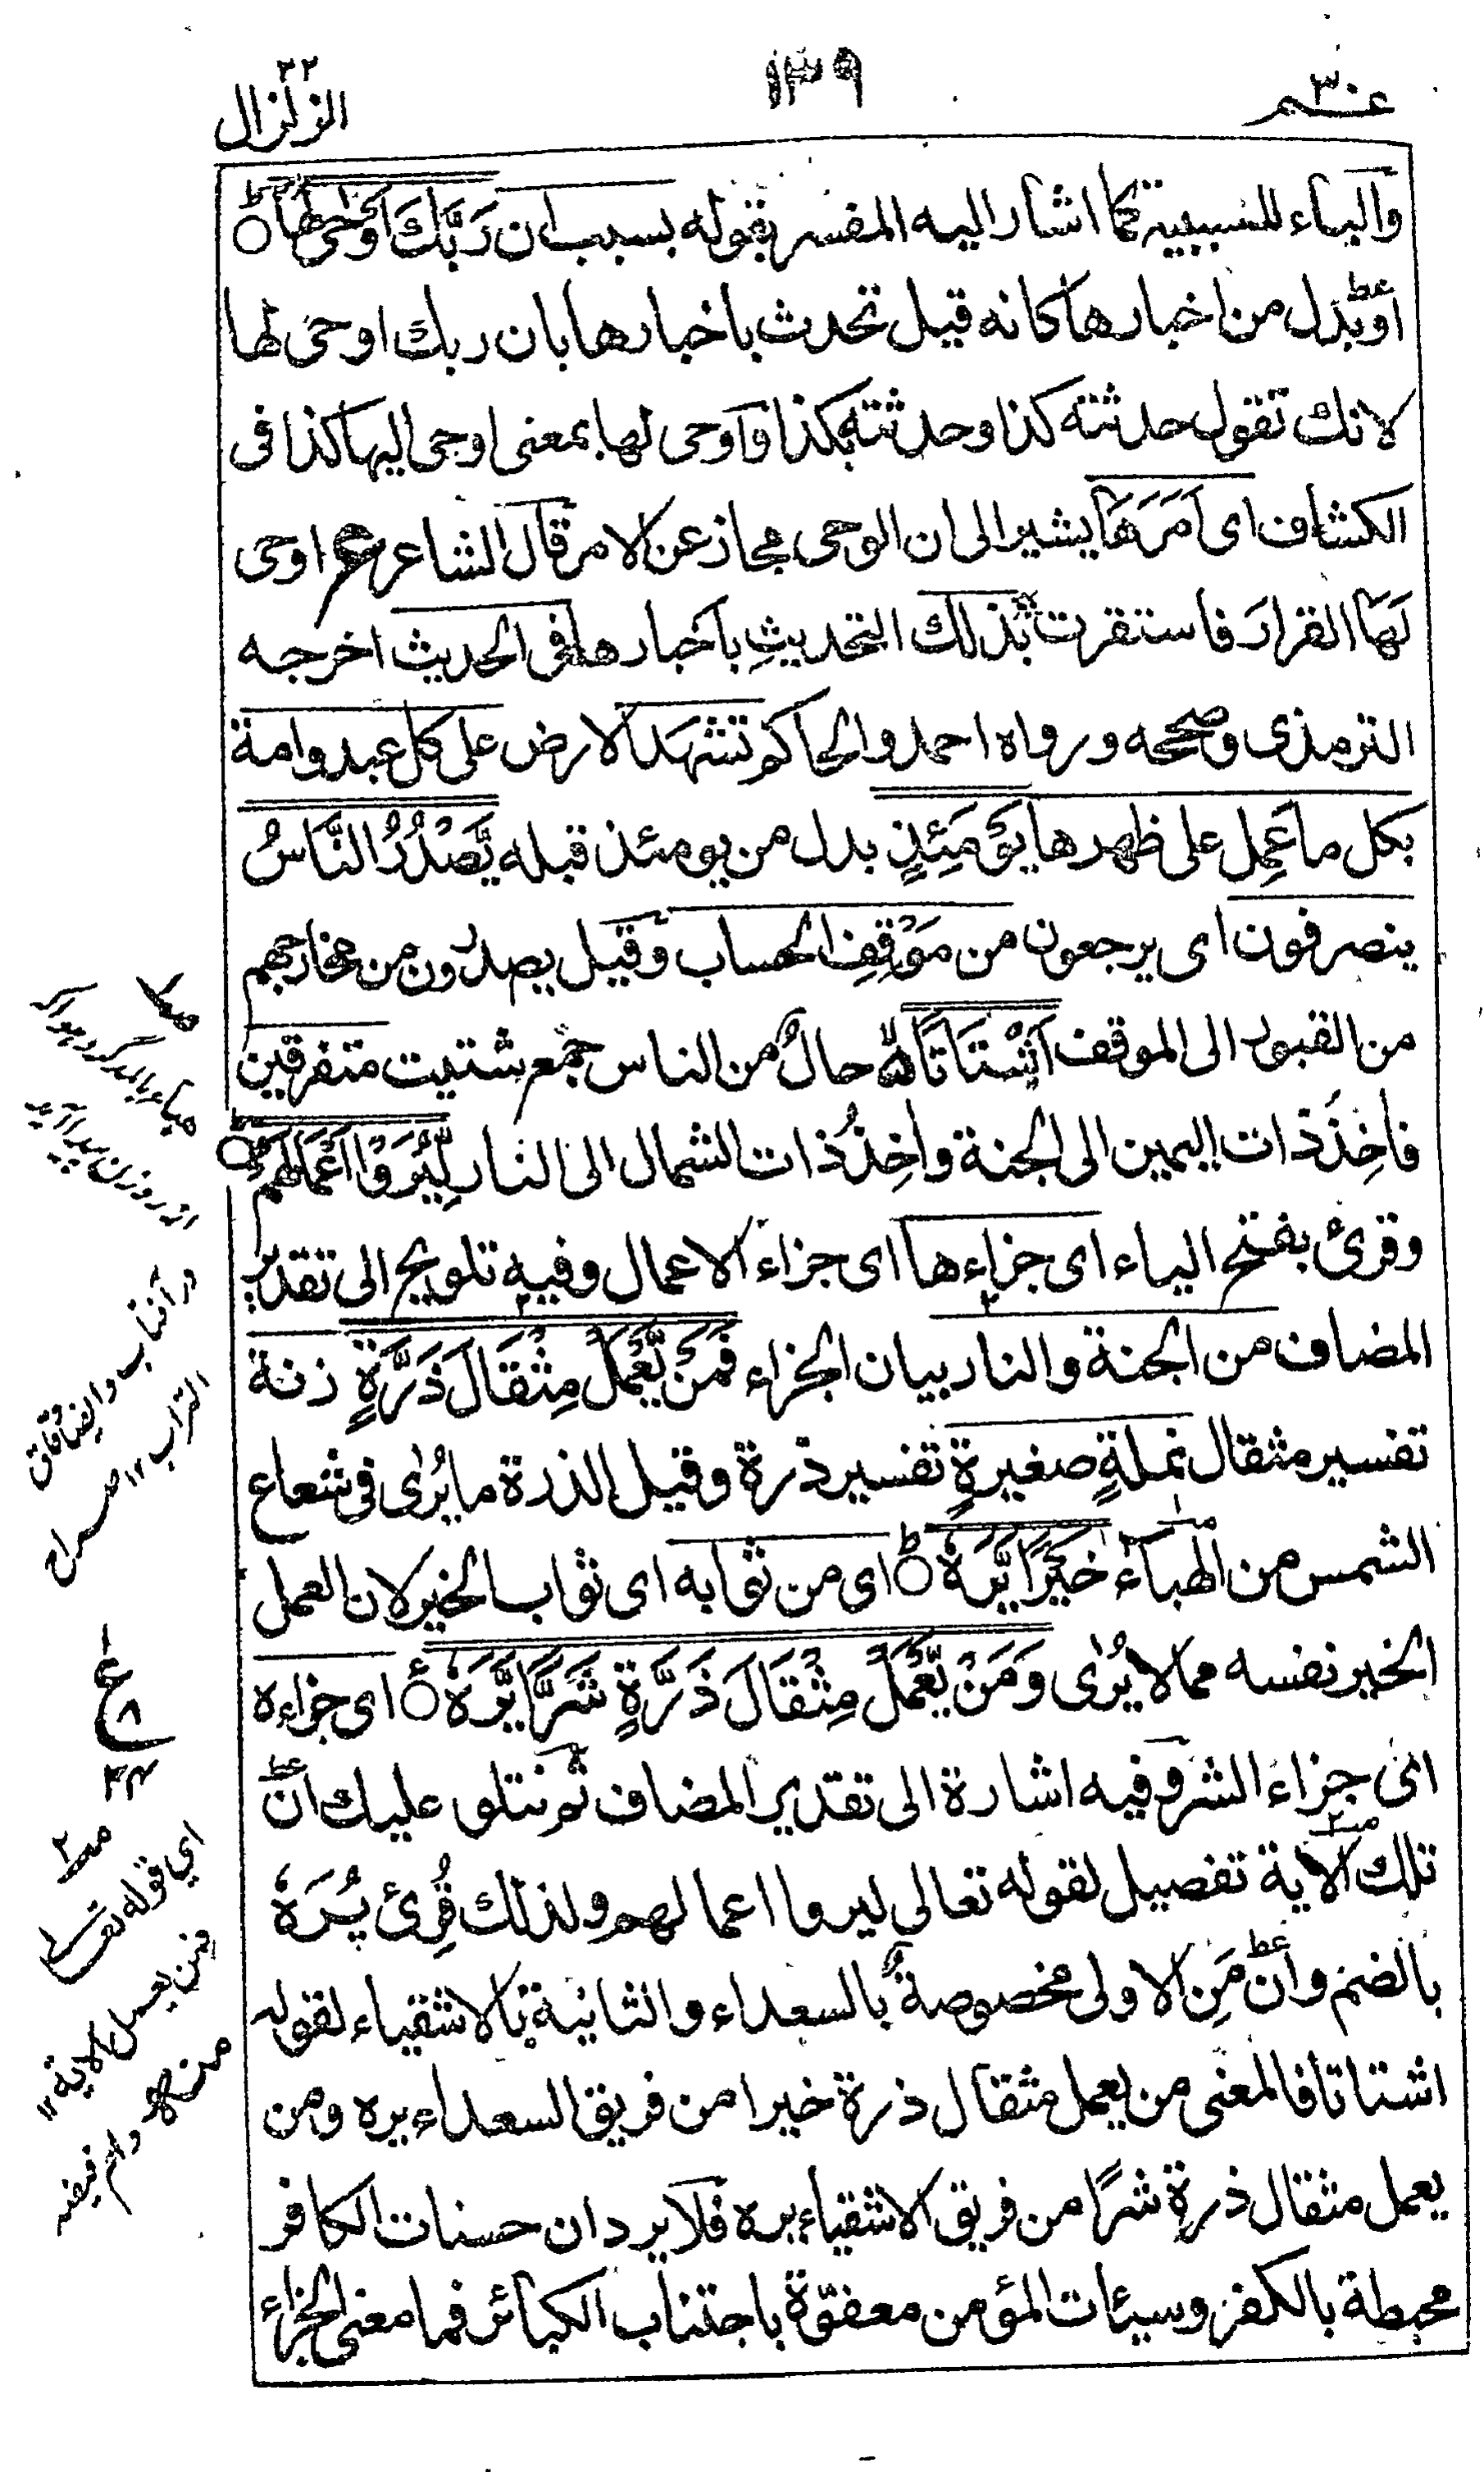 عم ٣٠
١٣٩
الزلزال ٣٢
والباء للسببية كما اشار اليه المفسر بقوله بسبب ان رَبَّكَ اَوْحٰى لَهَا
او بدل من اخبارها كانه قيل تحدث باخبارها بان ربك اوحى لها
لانك تقول حدثته كذا وحدثته بكذا واوحى لها بمعنى اوحى اليها كذا فى
الكشاف اى اَمَرَهَا يشير الى ان الوحى مجاز عن الامر قال الشاعر ع اوحى
لَهَا القرارَ فاستقرت بذلك التحديثِ باخبارها فى الحديث اخرجه
الترمذى وصححه ورواه احمد والحاكم تشهد الارض على كل عبد وامة
بكل ما عَمِل على ظهرها يَوْمَئِذٍ بدل من يومئذ قبله يَّصْدُرُ النَّاسُ
ينصرفون اى يرجعون من مَوْقِفِ الحساب وقيل يصدرون من مخارجهم
من القبور الى الموقف اَشْتَاتًا حالٌ من الناس جمع شتيت متفرقين
فاٰخِذٌ ذات اليمين الى الجنة واٰخِذٌ ذات الشمال الى النار لِّيُرَوْا اَعْمَالَهُمْ
وقرئ بفتح الياء اى جزاءها اى جزاء الاعمال وفيه تلويح الى تقدير
المضاف من الجنة والنار بيان الجزاء فَمَنْ يَّعْمَلْ مِثْقَالَ ذَرَّةٍ زنة
تفسير مثقال نملةٍ صغيرةٍ تفسير ذرة وقيل الذرة ما يُرٰى فى شعاع
الشمس من الهباء خَيْرًا يَّرَهٗ اى من ثوابه اى ثواب الخير لان العمل
الخير نفسه مما لا يُرٰى وَمَنْ يَّعْمَلْ مِثْقَالَ ذَرَّةٍ شَرًّا يَّرَهٗ اى جزاءه
اى جزاء الشر وفيه اشارة الى تقدير المضاف ثم نتلو عليك انّ
تلك الاية تفصيل لقوله تعالى ليروا اعمالهم ولذلك قُرِئ يُرَهٗ
بالضم وانّ مَن الاولى مخصوصة بالسعداء والثانية بالاشقياء لقوله
اشتاتا فالمعنى من يعمل مثقال ذرة خيرا من فريق السعداء يره ومن
يعمل مثقال ذرة شرًا من فريق الاشقياء يره فلا يرد ان حسنات الكافر
محبطة بالكفر وسيئات المؤمن معفوّة باجتناب الكبائر فما معنى الجزاء
از روزن پيدا آيد
در آفتاب
التراب ١٢ صراح
ع
٨
٢٤
اي قوله تعالى
فمن يعمل الاية ١٢
منه دام فيضه